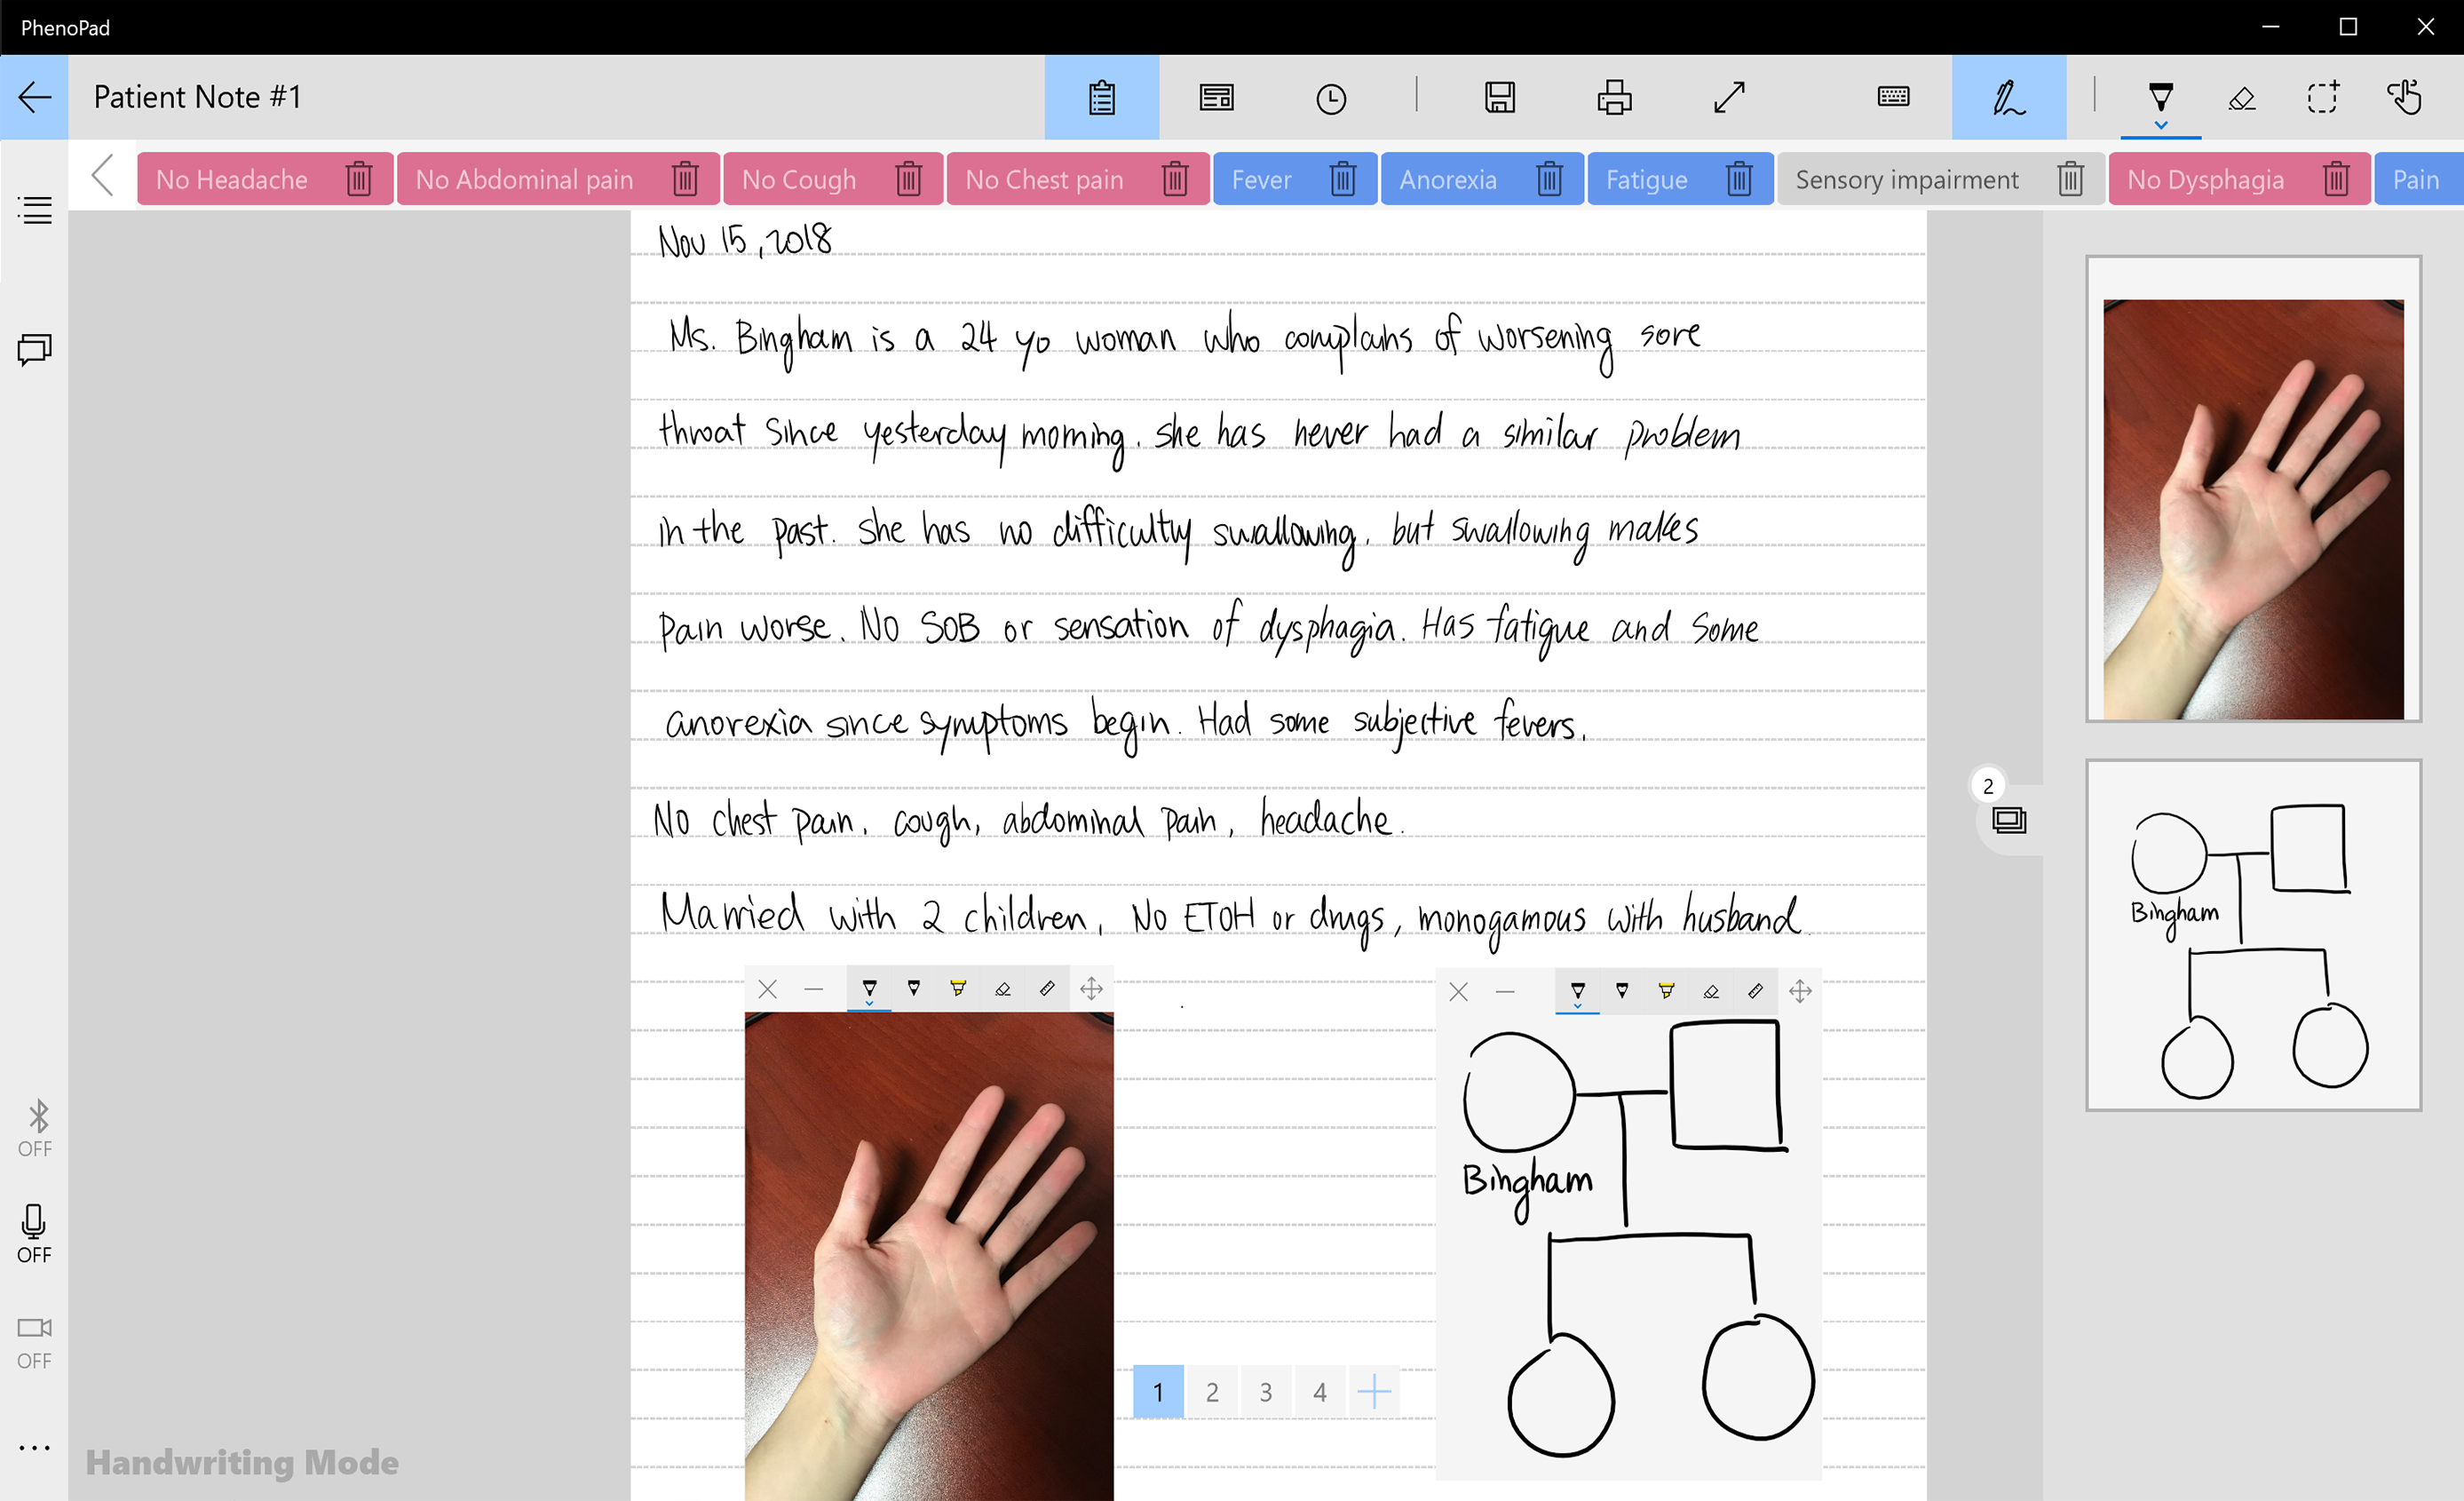 PhenoPad
Patient Note #1
No Headache No Abdominal pain No Cough No Chest pain Fever Anorexia Fatigue Sensory impairment No Dysphagia Pain
Nov 15, 2018
Ms. Bingham is a 24 yo woman who complains of worsening sore
throat since yesterday morning. she has never had a similar problem
in the past. she has no difficulty swallowing, but swallowing makes
pain worse. No SOB or sensation of dysphagia. Has fatigue and some
anorexia since symptoms begin. Had some subjective fevers.
No chest pain, cough, abdominal pain, headache.
Married with 2 children, No ETOH or drugs, monogamous with husband.
Bingham
1 2 3 4
2
Bingham
OFF
OFF
OFF
Handwriting Mode